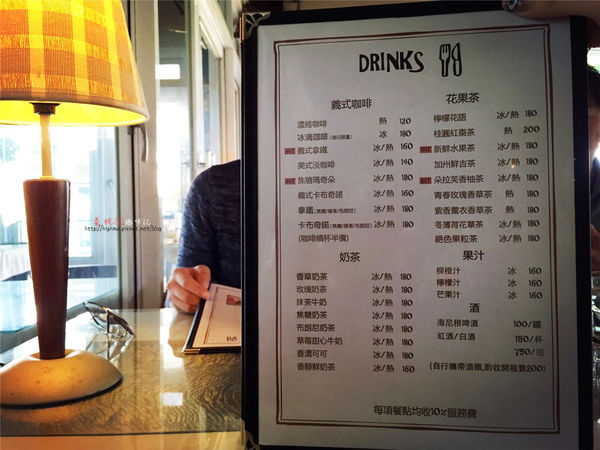 DRINKS
義式咖啡
濃縮咖啡 熱 120
冰滴咖啡(每日限量) 冰 180
HOT 義式拿鐵 冰/熱 160
美式淡咖啡 冰/熱 140
HOT 焦糖瑪奇朵 冰/熱 180
義式卡布奇諾 冰/熱 160
拿鐵(焦糖/榛果/布朗尼) 冰/熱 180
卡布奇諾(焦糖/榛果/布朗尼) 冰/熱 180
(咖啡續杯半價)
奶茶
香草奶茶 冰/熱 180
玫瑰奶茶 冰/熱 180
抹茶牛奶 冰/熱 180
焦糖奶茶 冰/熱 180
布朗尼奶茶 冰/熱 180
草莓甜心牛奶 冰/熱 180
香濃可可 冰/熱 180
香醇鮮奶茶 冰/熱 160
花果茶
檸檬花語 冰/熱 180
桂圓紅棗茶 熱 200
HOT 新鮮水果茶 冰/熱 180
加州鮮吉茶 冰/熱 180
HOT 朵拉芙香柚茶 冰/熱 180
青春玫瑰香草茶 熱 180
紫香薰衣香草茶 熱 180
冬薄荷花草茶 冰/熱 180
絕色果粒茶 冰/熱 180
果汁
柳橙汁 冰 160
檸檬汁 冰 160
芒果汁 冰 160
酒
海尼根啤酒 100/罐
紅酒/白酒 150/杯
750/瓶
(自行攜帶酒類,酌收開瓶費200)
每項餐點均收10%服務費